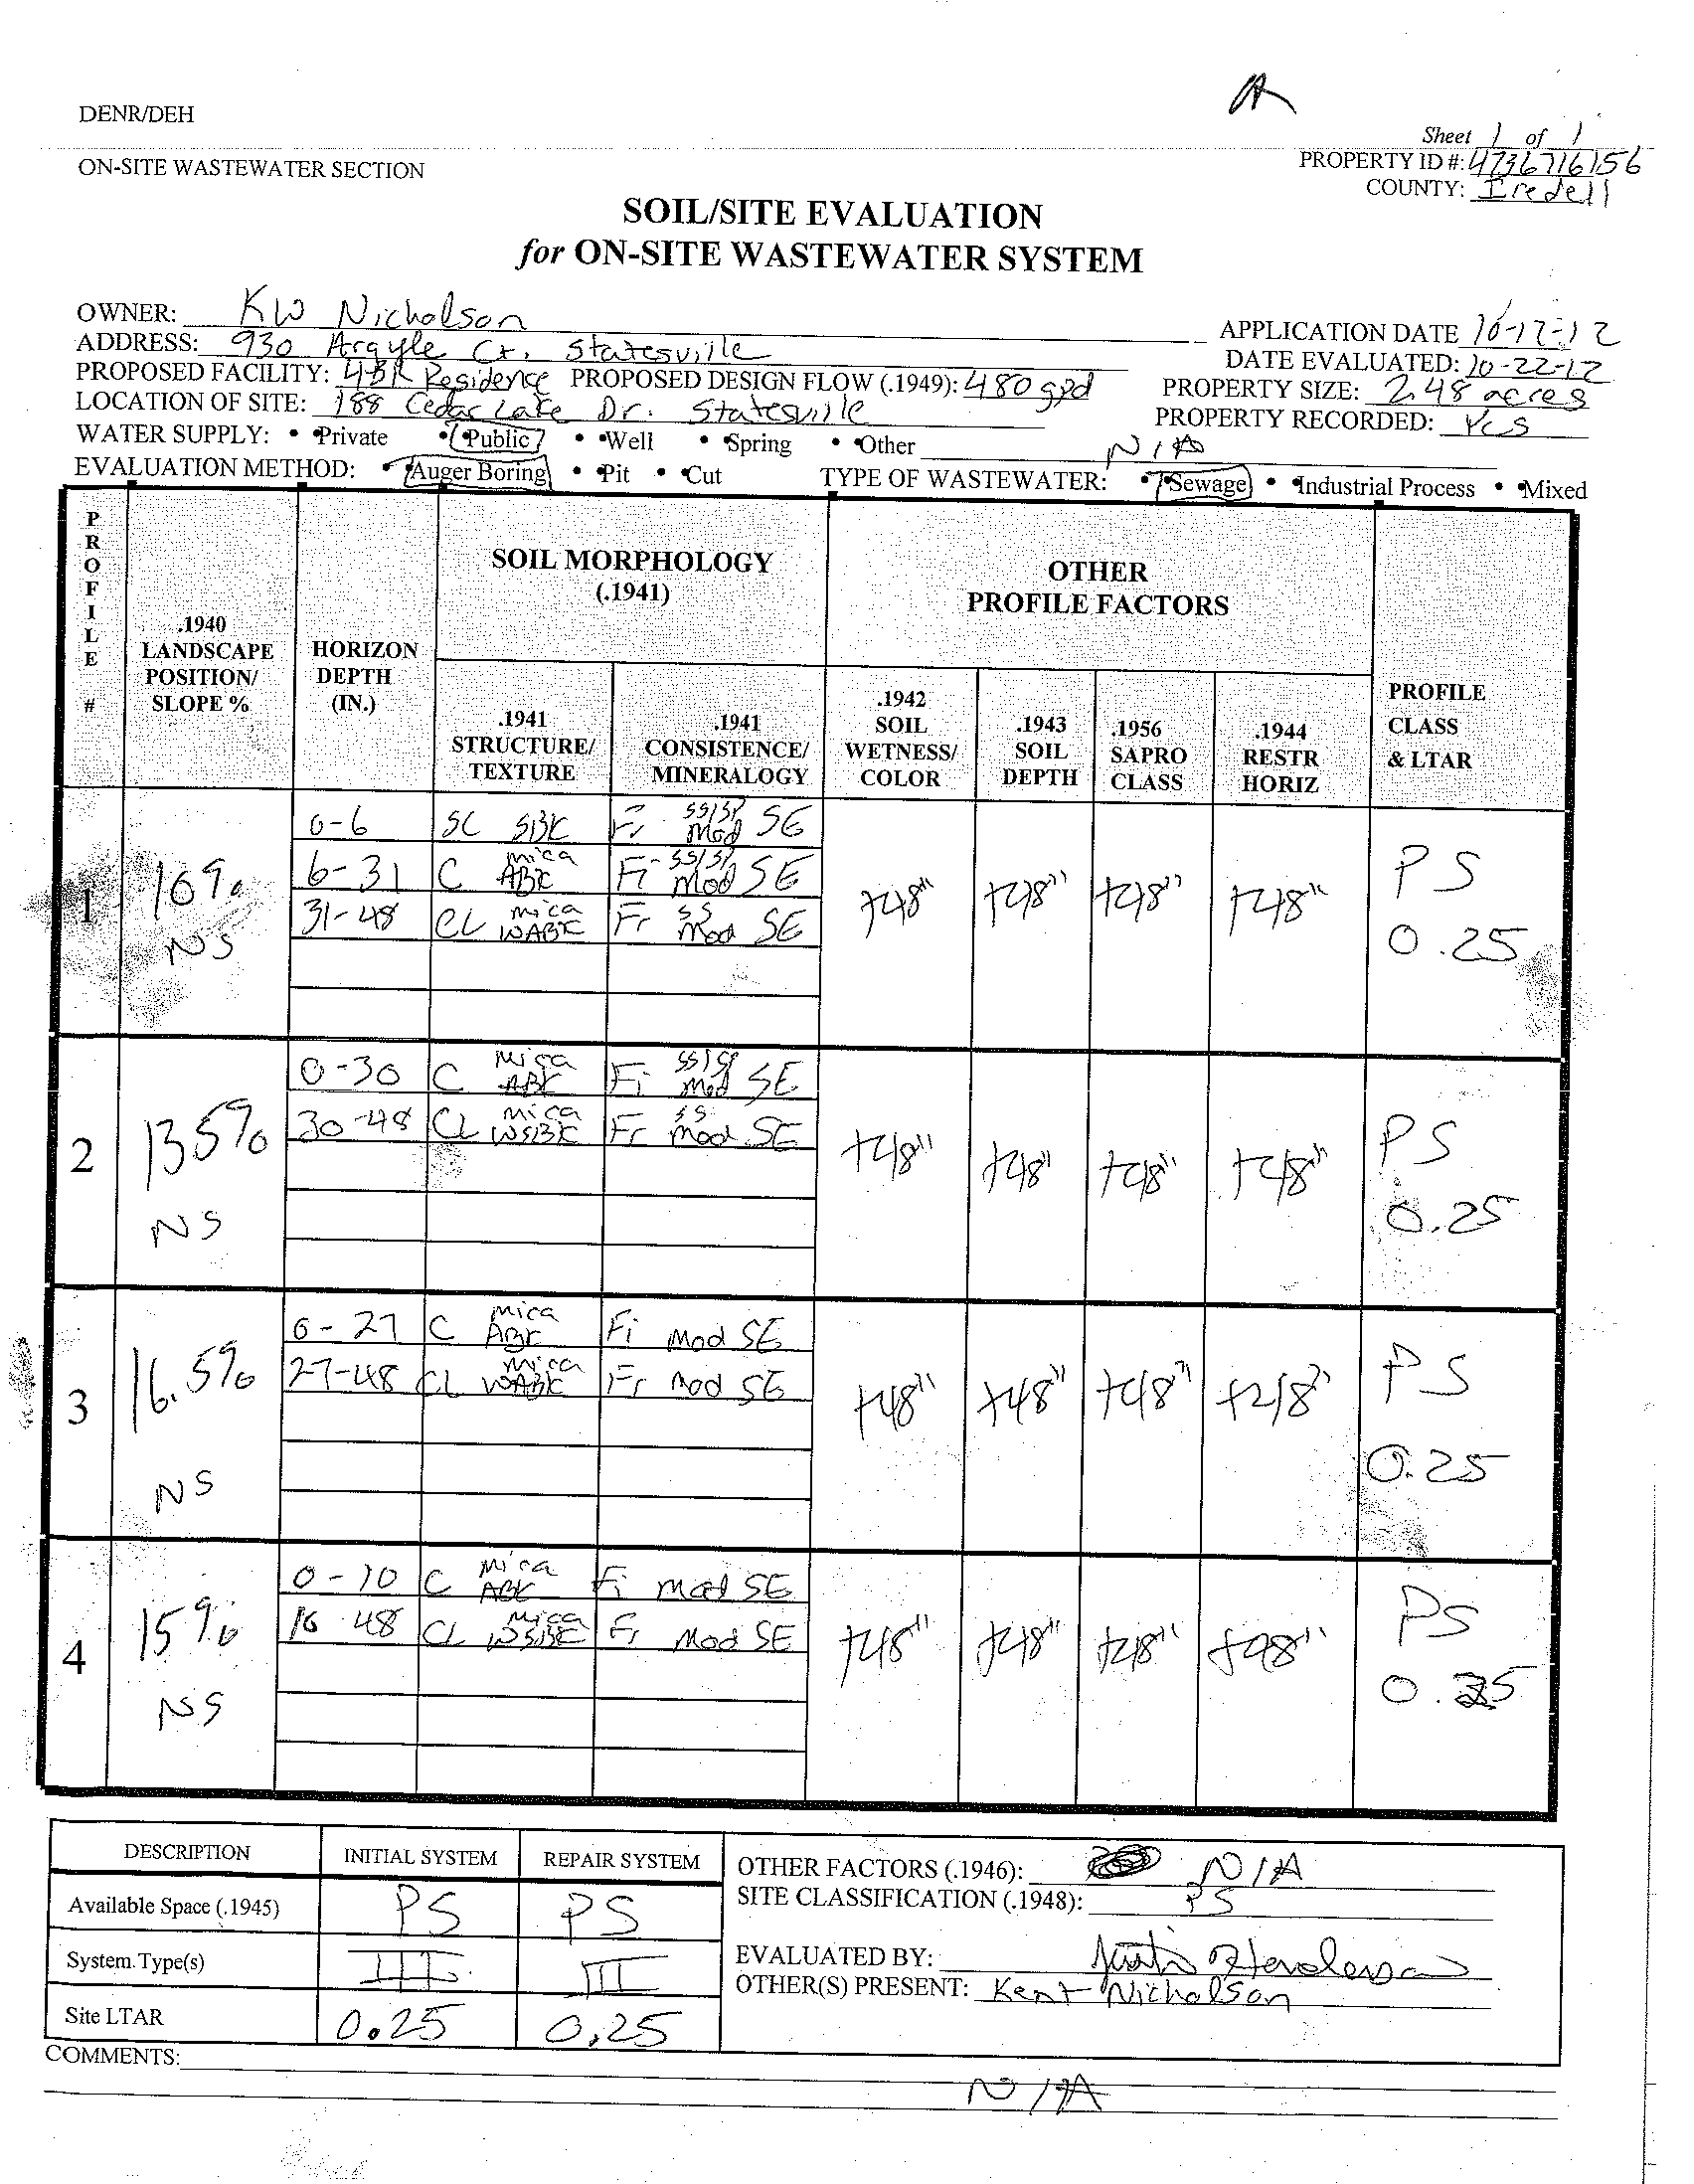 DENR/DEH
Sheet 1 of 1
ON-SITE WASTEWATER SECTION
PROPERTY ID #: 4736716156
COUNTY: Iredell
SOIL/SITE EVALUATION
for ON-SITE WASTEWATER SYSTEM
OWNER: KW Nicholson
ADDRESS: 930 Argyle Ct. Statesville
PROPOSED FACILITY: 4BR Residence PROPOSED DESIGN FLOW (.1949): 480 gpd
LOCATION OF SITE: 188 Cedar Lake Dr. Statesville
APPLICATION DATE 10-17-12
DATE EVALUATED: 10-22-12
PROPERTY SIZE: 2.48 acres
PROPERTY RECORDED: Yes
WATER SUPPLY: • Private • Public • Well • Spring • Other N/A
EVALUATION METHOD: • Auger Boring • Pit • Cut TYPE OF WASTEWATER: • Sewage • Industrial Process • Mixed
PROFILE #
.1940 LANDSCAPE POSITION/ SLOPE %
HORIZON DEPTH (IN.)
SOIL MORPHOLOGY (.1941)
.1941 STRUCTURE/ TEXTURE
.1941 CONSISTENCE/ MINERALOGY
OTHER PROFILE FACTORS
.1942 SOIL WETNESS/ COLOR
.1943 SOIL DEPTH
.1956 SAPRO CLASS
.1944 RESTR HORIZ
PROFILE CLASS & LTAR
1
16% NS
0-6 SC SBK Fr ss/sp Mod SE
6-31 C mica ABK Fi ss/sp Mod SE
31-48 CL mica WABK Fr ss Mod SE
+48" +48" +48" +48"
PS 0.25
2
13.5% NS
0-30 C mica ABK Fi ss/sp Mod SE
30-48 CL mica WSBK Fr ss Mod SE
+48" +48" +48" +48"
PS 0.25
3
16.5% NS
0-27 C mica ABK Fi Mod SE
27-48 CL mica WABK Fr Mod SE
+48" +48" +48" +48"
PS 0.25
4
15% NS
0-10 C mica ABK Fi Mod SE
48 CL mica WSBK Fr Mod SE
+48" +48" +48" +48"
PS
DESCRIPTION INITIAL SYSTEM REPAIR SYSTEM
Available Space (.1945) PS PS
System Type(s) III III
Site LTAR 0.25 0.25
OTHER FACTORS (.1946): N/A
SITE CLASSIFICATION (.1948): PS
EVALUATED BY: Justin Henderson
OTHER(S) PRESENT: Kent Nicholson
COMMENTS:
N/A